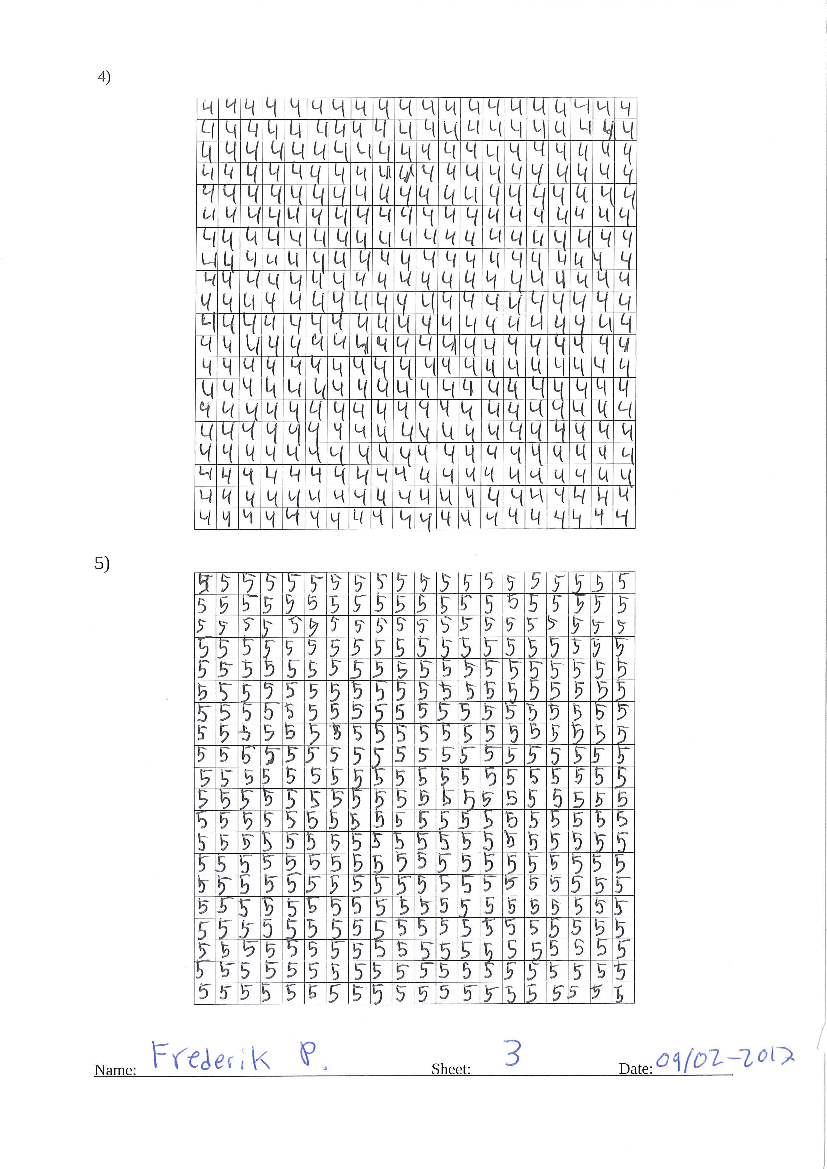 4)
4 4 4 4 4 4 4 4 4 4 4 4 4 4 4 4 4 4 4 4
4 4 4 4 4 4 4 4 4 4 4 4 4 4 4 4 4 4 4 4
4 4 4 4 4 4 4 4 4 4 4 4 4 4 4 4 4 4 4 4
4 4 4 4 4 4 4 4 4 4 4 4 4 4 4 4 4 4 4 4
4 4 4 4 4 4 4 4 4 4 4 4 4 4 4 4 4 4 4 4
4 4 4 4 4 4 4 4 4 4 4 4 4 4 4 4 4 4 4 4
4 4 4 4 4 4 4 4 4 4 4 4 4 4 4 4 4 4 4 4
4 4 4 4 4 4 4 4 4 4 4 4 4 4 4 4 4 4 4 4
4 4 4 4 4 4 4 4 4 4 4 4 4 4 4 4 4 4 4 4
4 4 4 4 4 4 4 4 4 4 4 4 4 4 4 4 4 4 4 4
4 4 4 4 4 4 4 4 4 4 4 4 4 4 4 4 4 4 4 4
4 4 4 4 4 4 4 4 4 4 4 4 4 4 4 4 4 4 4 4
4 4 4 4 4 4 4 4 4 4 4 4 4 4 4 4 4 4 4 4
4 4 4 4 4 4 4 4 4 4 4 4 4 4 4 4 4 4 4 4
4 4 4 4 4 4 4 4 4 4 4 4 4 4 4 4 4 4 4 4
4 4 4 4 4 4 4 4 4 4 4 4 4 4 4 4 4 4 4 4
4 4 4 4 4 4 4 4 4 4 4 4 4 4 4 4 4 4 4 4
4 4 4 4 4 4 4 4 4 4 4 4 4 4 4 4 4 4 4 4
4 4 4 4 4 4 4 4 4 4 4 4 4 4 4 4 4 4 4 4
4 4 4 4 4 4 4 4 4 4 4 4 4 4 4 4 4 4 4 4
5)
5 5 5 5 5 5 5 5 5 5 5 5 5 5 5 5 5 5 5 5
5 5 5 5 5 5 5 5 5 5 5 5 5 5 5 5 5 5 5 5
5 5 5 5 5 5 5 5 5 5 5 5 5 5 5 5 5 5 5 5
5 5 5 5 5 5 5 5 5 5 5 5 5 5 5 5 5 5 5 5
5 5 5 5 5 5 5 5 5 5 5 5 5 5 5 5 5 5 5 5
5 5 5 5 5 5 5 5 5 5 5 5 5 5 5 5 5 5 5 5
5 5 5 5 5 5 5 5 5 5 5 5 5 5 5 5 5 5 5 5
5 5 5 5 5 5 5 5 5 5 5 5 5 5 5 5 5 5 5 5
5 5 5 5 5 5 5 5 5 5 5 5 5 5 5 5 5 5 5 5
5 5 5 5 5 5 5 5 5 5 5 5 5 5 5 5 5 5 5 5
5 5 5 5 5 5 5 5 5 5 5 5 5 5 5 5 5 5 5 5
5 5 5 5 5 5 5 5 5 5 5 5 5 5 5 5 5 5 5 5
5 5 5 5 5 5 5 5 5 5 5 5 5 5 5 5 5 5 5 5
5 5 5 5 5 5 5 5 5 5 5 5 5 5 5 5 5 5 5 5
5 5 5 5 5 5 5 5 5 5 5 5 5 5 5 5 5 5 5 5
5 5 5 5 5 5 5 5 5 5 5 5 5 5 5 5 5 5 5 5
5 5 5 5 5 5 5 5 5 5 5 5 5 5 5 5 5 5 5 5
5 5 5 5 5 5 5 5 5 5 5 5 5 5 5 5 5 5 5 5
5 5 5 5 5 5 5 5 5 5 5 5 5 5 5 5 5 5 5 5
5 5 5 5 5 5 5 5 5 5 5 5 5 5 5 5 5 5 5 5
Name: Frederik P. Sheet: 3 Date: 09/02-2017